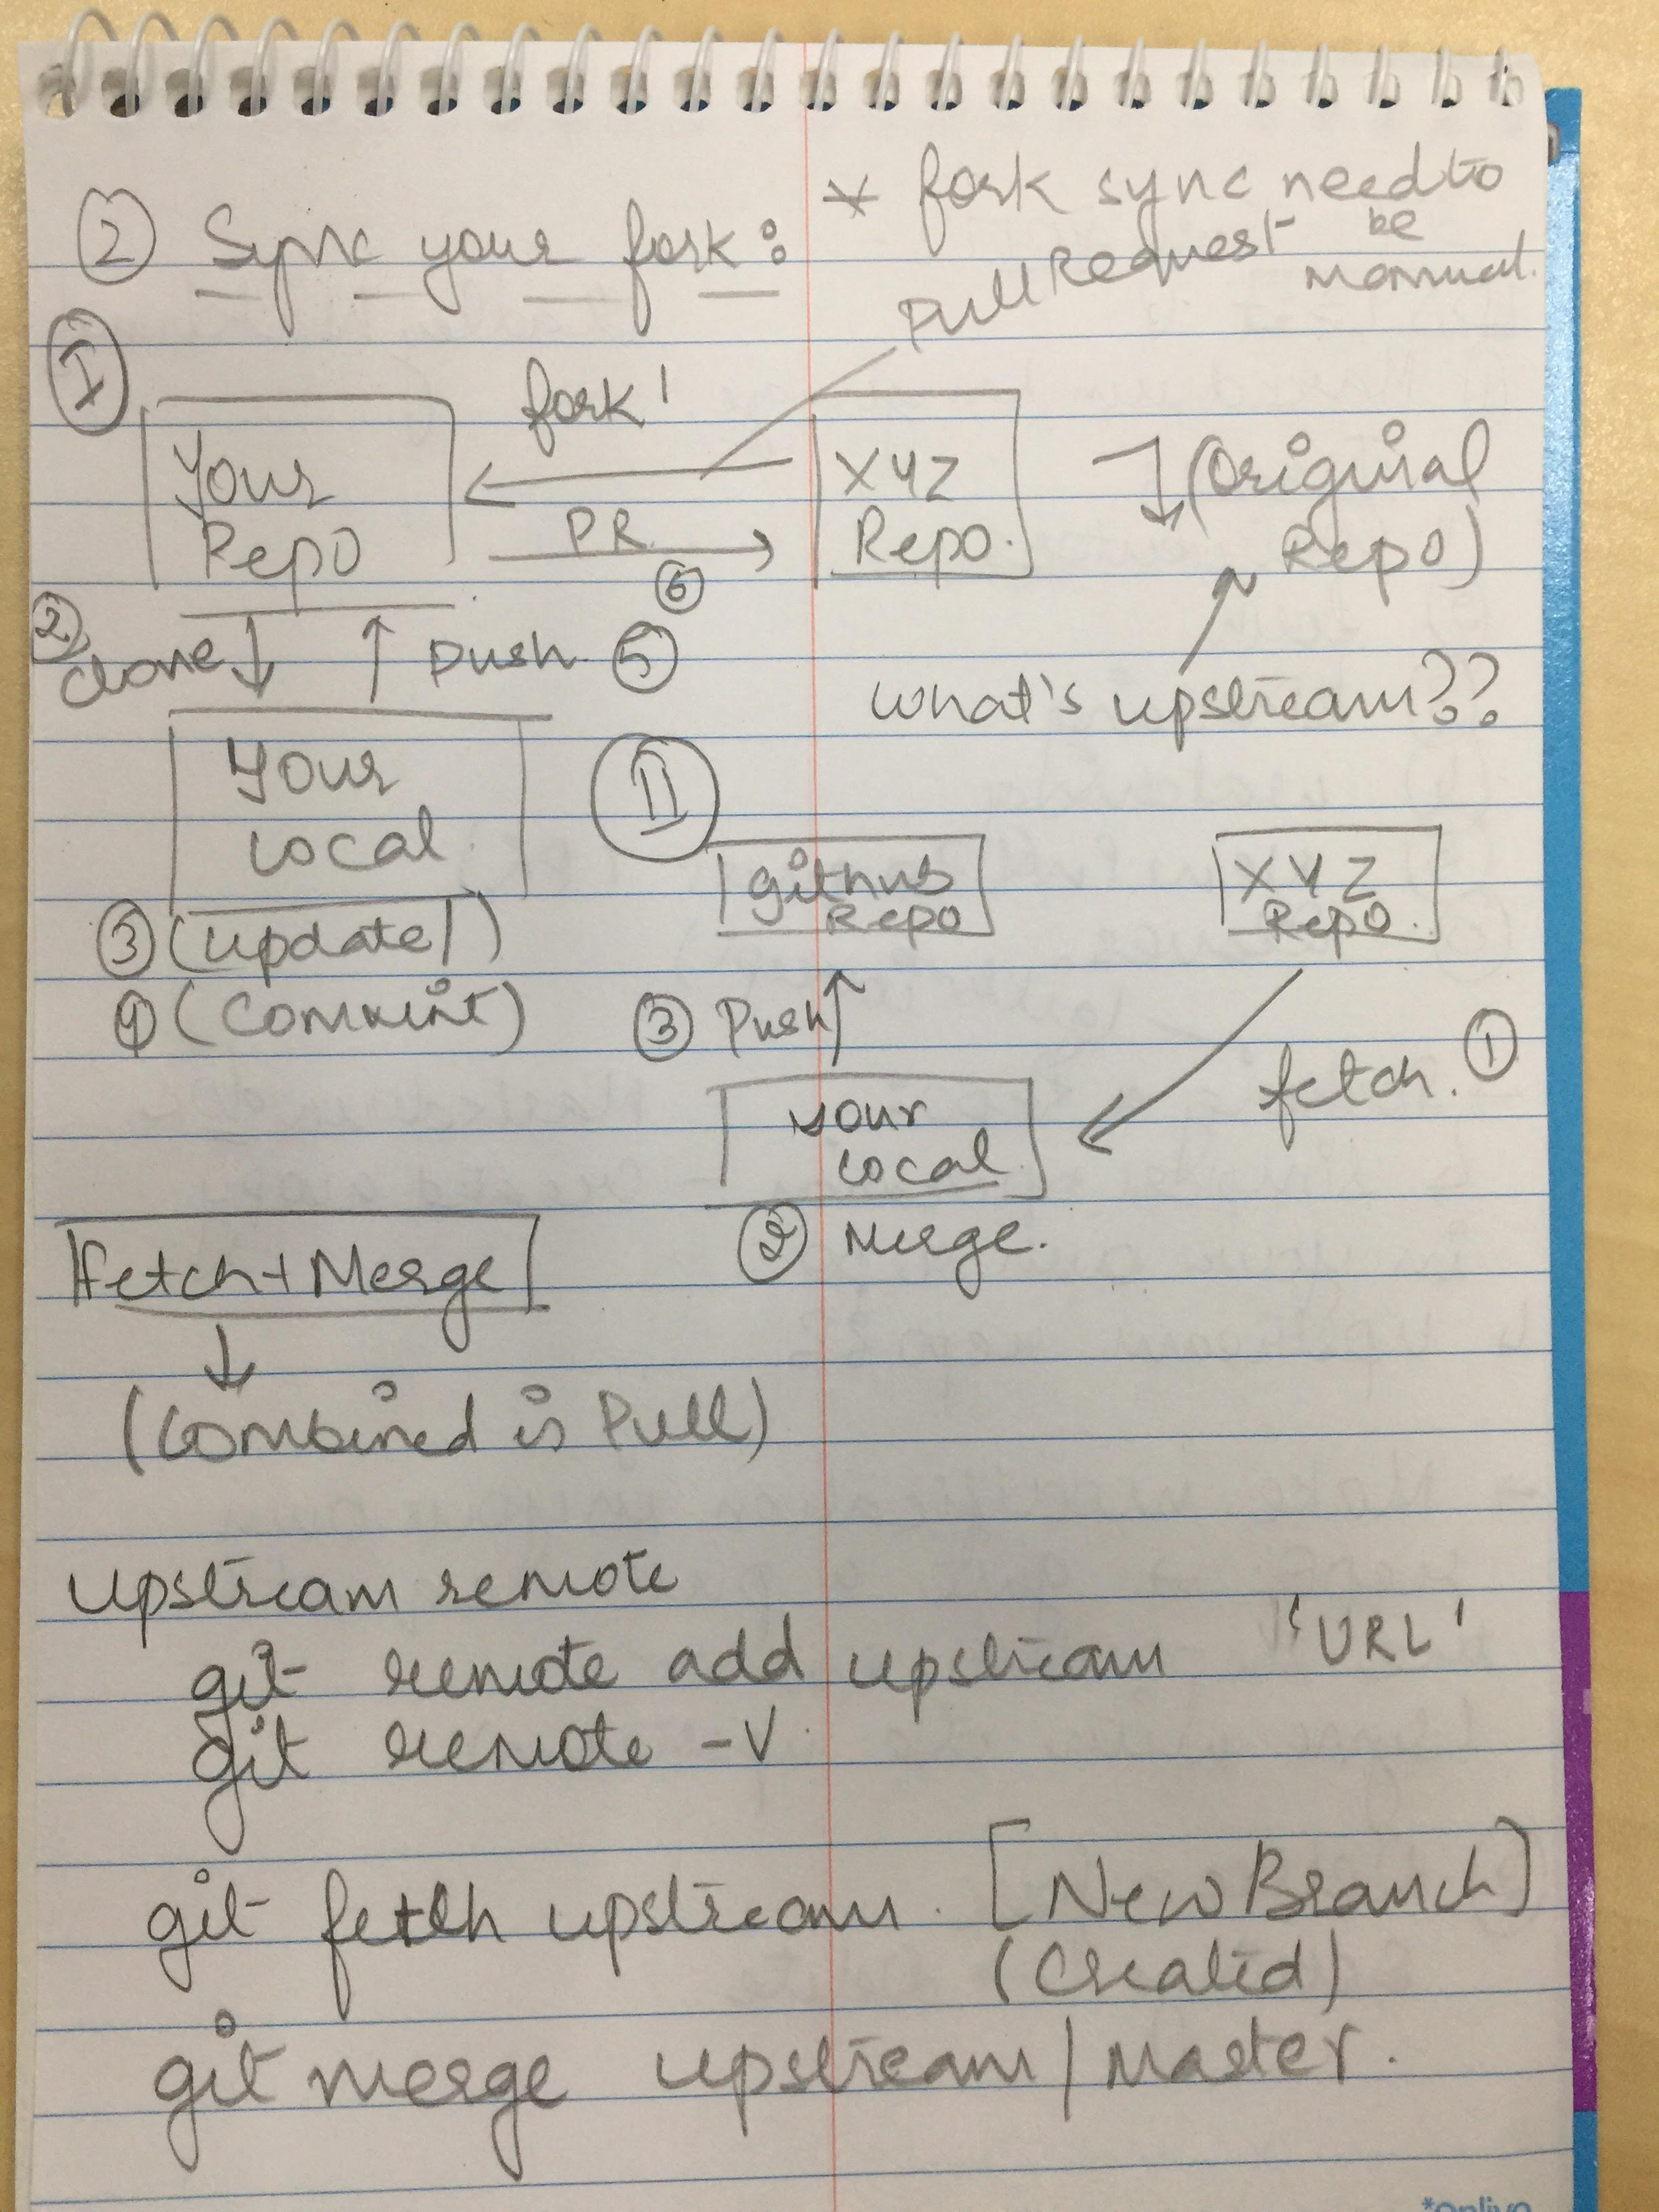 ② Sync your fork:
* fork sync need to
be
manual.
Pull Request
I
fork 1
Your
Repo
XYZ
Repo.
(Original
Repo)
PR
⑥
②
clone
push ⑤
what's upstream??
Your
Local
II
github
Repo
XYZ
Repo.
③ (update/)
④ (Commit)
③ Push
fetch. ①
your
local
② Merge.
Fetch+Merge
(Combined is Pull)
upstream remote
git remote add upstream 'URL'
git remote -v
git fetch upstream. [New Branch]
(Created)
git merge upstream/master.